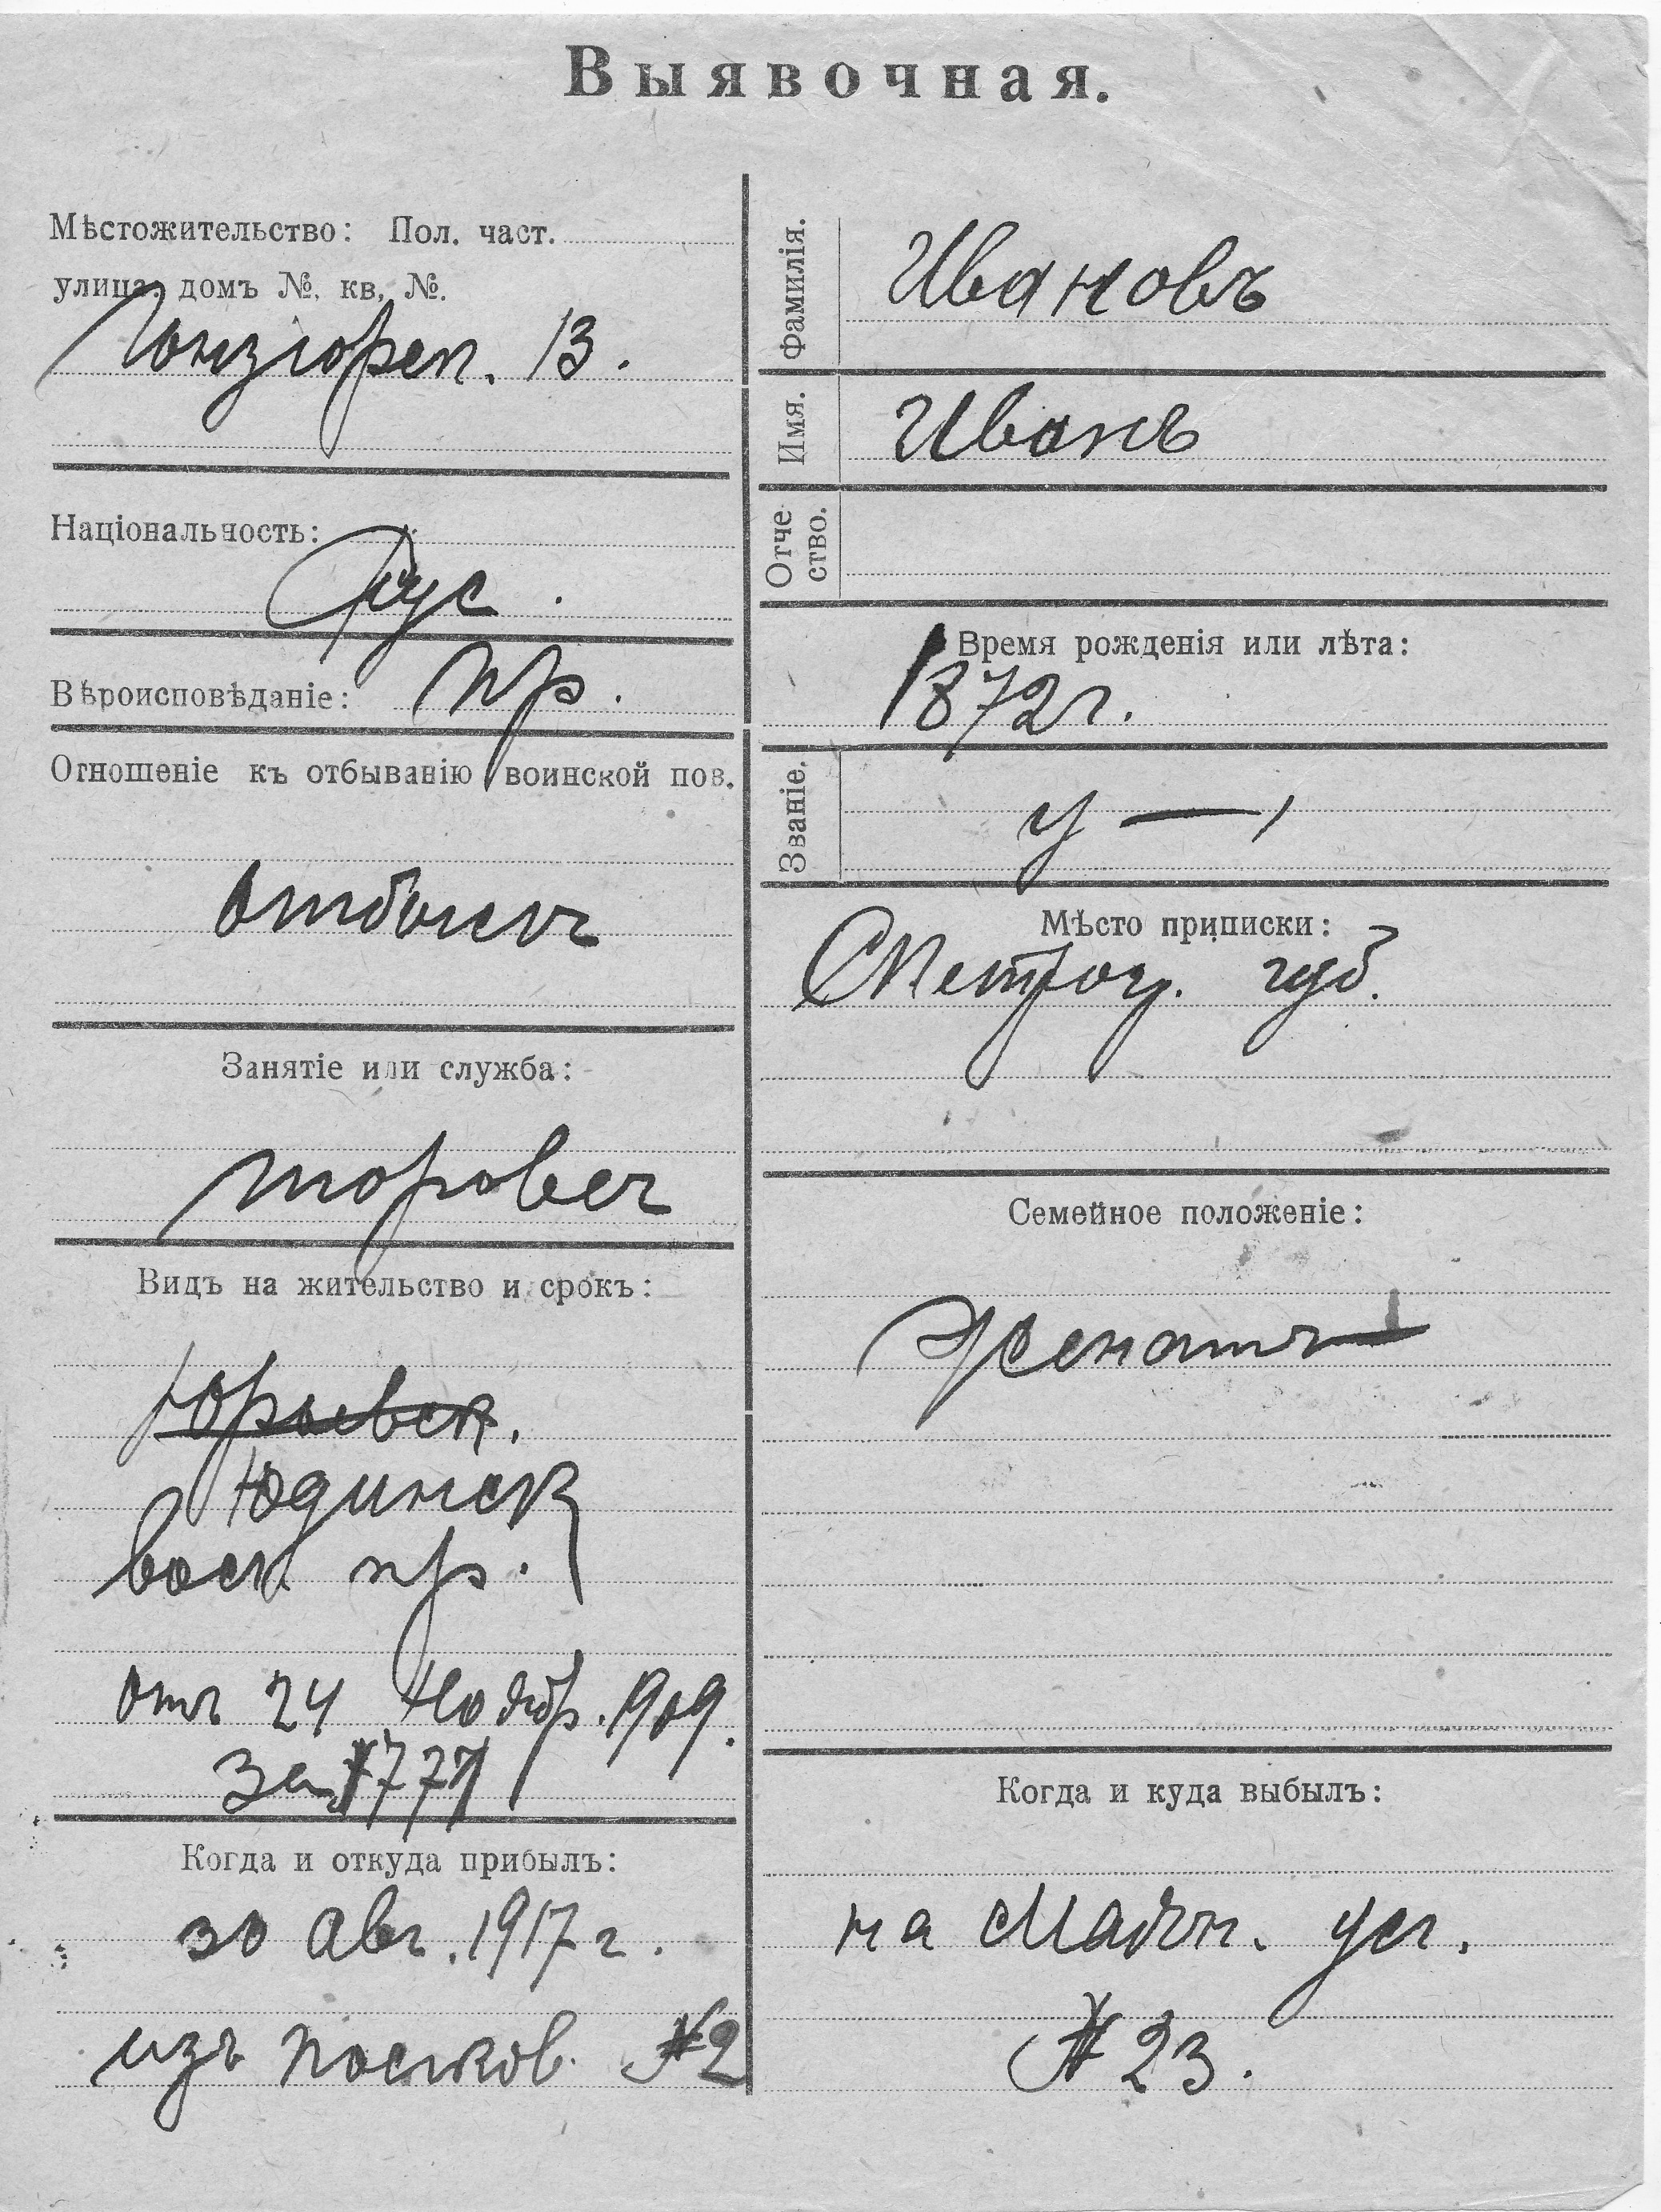 Выявочная.
Мѣстожительство: Пол. част.
улица, домъ №, кв, №.
13.
Національность:
Рус.
Вѣроисповѣданіе: пр.
Отношеніе къ отбыванію воинской пов.
отбылъ
Занятіе или служба:
торговец
Видъ на жительство и срокъ:
Юрьевск.
Юдинск
пр.
отъ 24 Ноябр. 1909.
за № 777
Когда и откуда прибылъ:
30 Авг. 1917 г.
изъ № 2
Фамилія.
Ивановъ
Имя.
Иванъ
Отче
ство.
Время рожденія или лѣта:
1872 г.
Званіе.
Мѣсто приписки:
СПетрог. губ.
Семейное положеніе:
Женатъ
Когда и куда выбылъ:
на
№ 23.